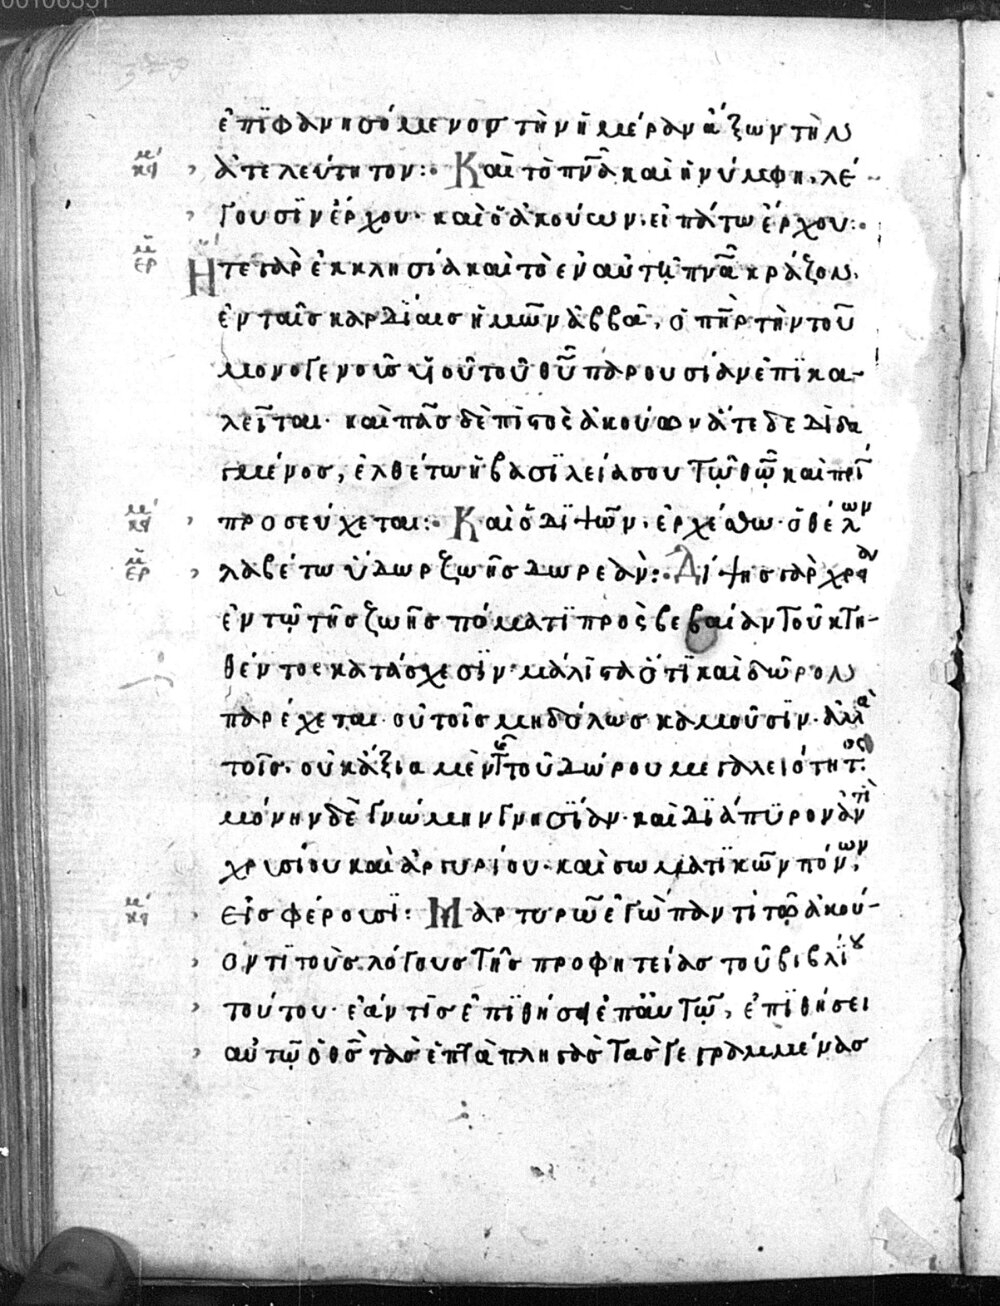 00100331
ἐπϊφανησόμενος τὴν ἡμέραν αὔξων τὴν
κεί
ἀτελεύτητον:· Καὶ τὸ πν̅α καὶ ἡ νύμφη, λέ
γουσϊν ἔρχου· καὶ ὁ ἀκούων, εἰπάτω ἔρχου:·
ἑρ
Ἥ τε γὰρ ἐκκλησία καὶ τὸ ἐν αὐτῇ πν̅α κράζον,
ἐν ταῖς καρδίαις ἡμῶν ἀββᾶ, ὁ πη̅ρ τὴν τοῦ
μονογενοῦς υἱοῦ τοῦ θ̅υ παρουσίαν ἐπϊκα-
λεῖται· καὶ πᾶς δὲ πϊστὸς ἀκούων ἅτε δεδιδα
γμένος, ἐλθέτω ἡ βασϊλεία σου τῷ θ̅ω καὶ πρϊ
κεί
προσεύχεται:· Καὶ ὁ διψῶν, ἐρχέσθω· ὁ θέλων
ἑρ
λαβέτω ὕδωρ ζωῆς δωρεάν:· Δίψης γὰρ χρεία
ἐν τῷ τῆς ζωῆς πόματϊ πρὸς βεβαίαν τοῦ κτη-
θέντος κατάσχεσϊν· μάλϊστα ὅτϊ καὶ δῶρον
παρέχεται· οὐ τοῖς μηδόλως καμοῦσϊν· ἀλλὰ
τοῖς, οὐκ ἄξια μὲν τῆς τοῦ δώρου μεγαλειότητος
μόνην δὲ γνώμην γνησϊάν· καὶ διάπϋρον ἀντὶ
χρυσίου καὶ ἀργυρίου· καὶ σωματϊκῶν πόνων,
κεί
εἰσφέρουσϊ: Μαρτυρῶ ἐγὼ παντὶ τῷ ἀκού-
οντϊ τοὺς λόγους τῆς προφητείας τοῦ βιβλϊου
τούτου· ἐάν τϊς ἐπϊθήσῃ ἐπ' αὐτῷ, ἐπϊθήσει
αὐτῷ ὁ θ̅ς τὰς ἑπτὰ πληγὰς τὰς γεγραμμένας